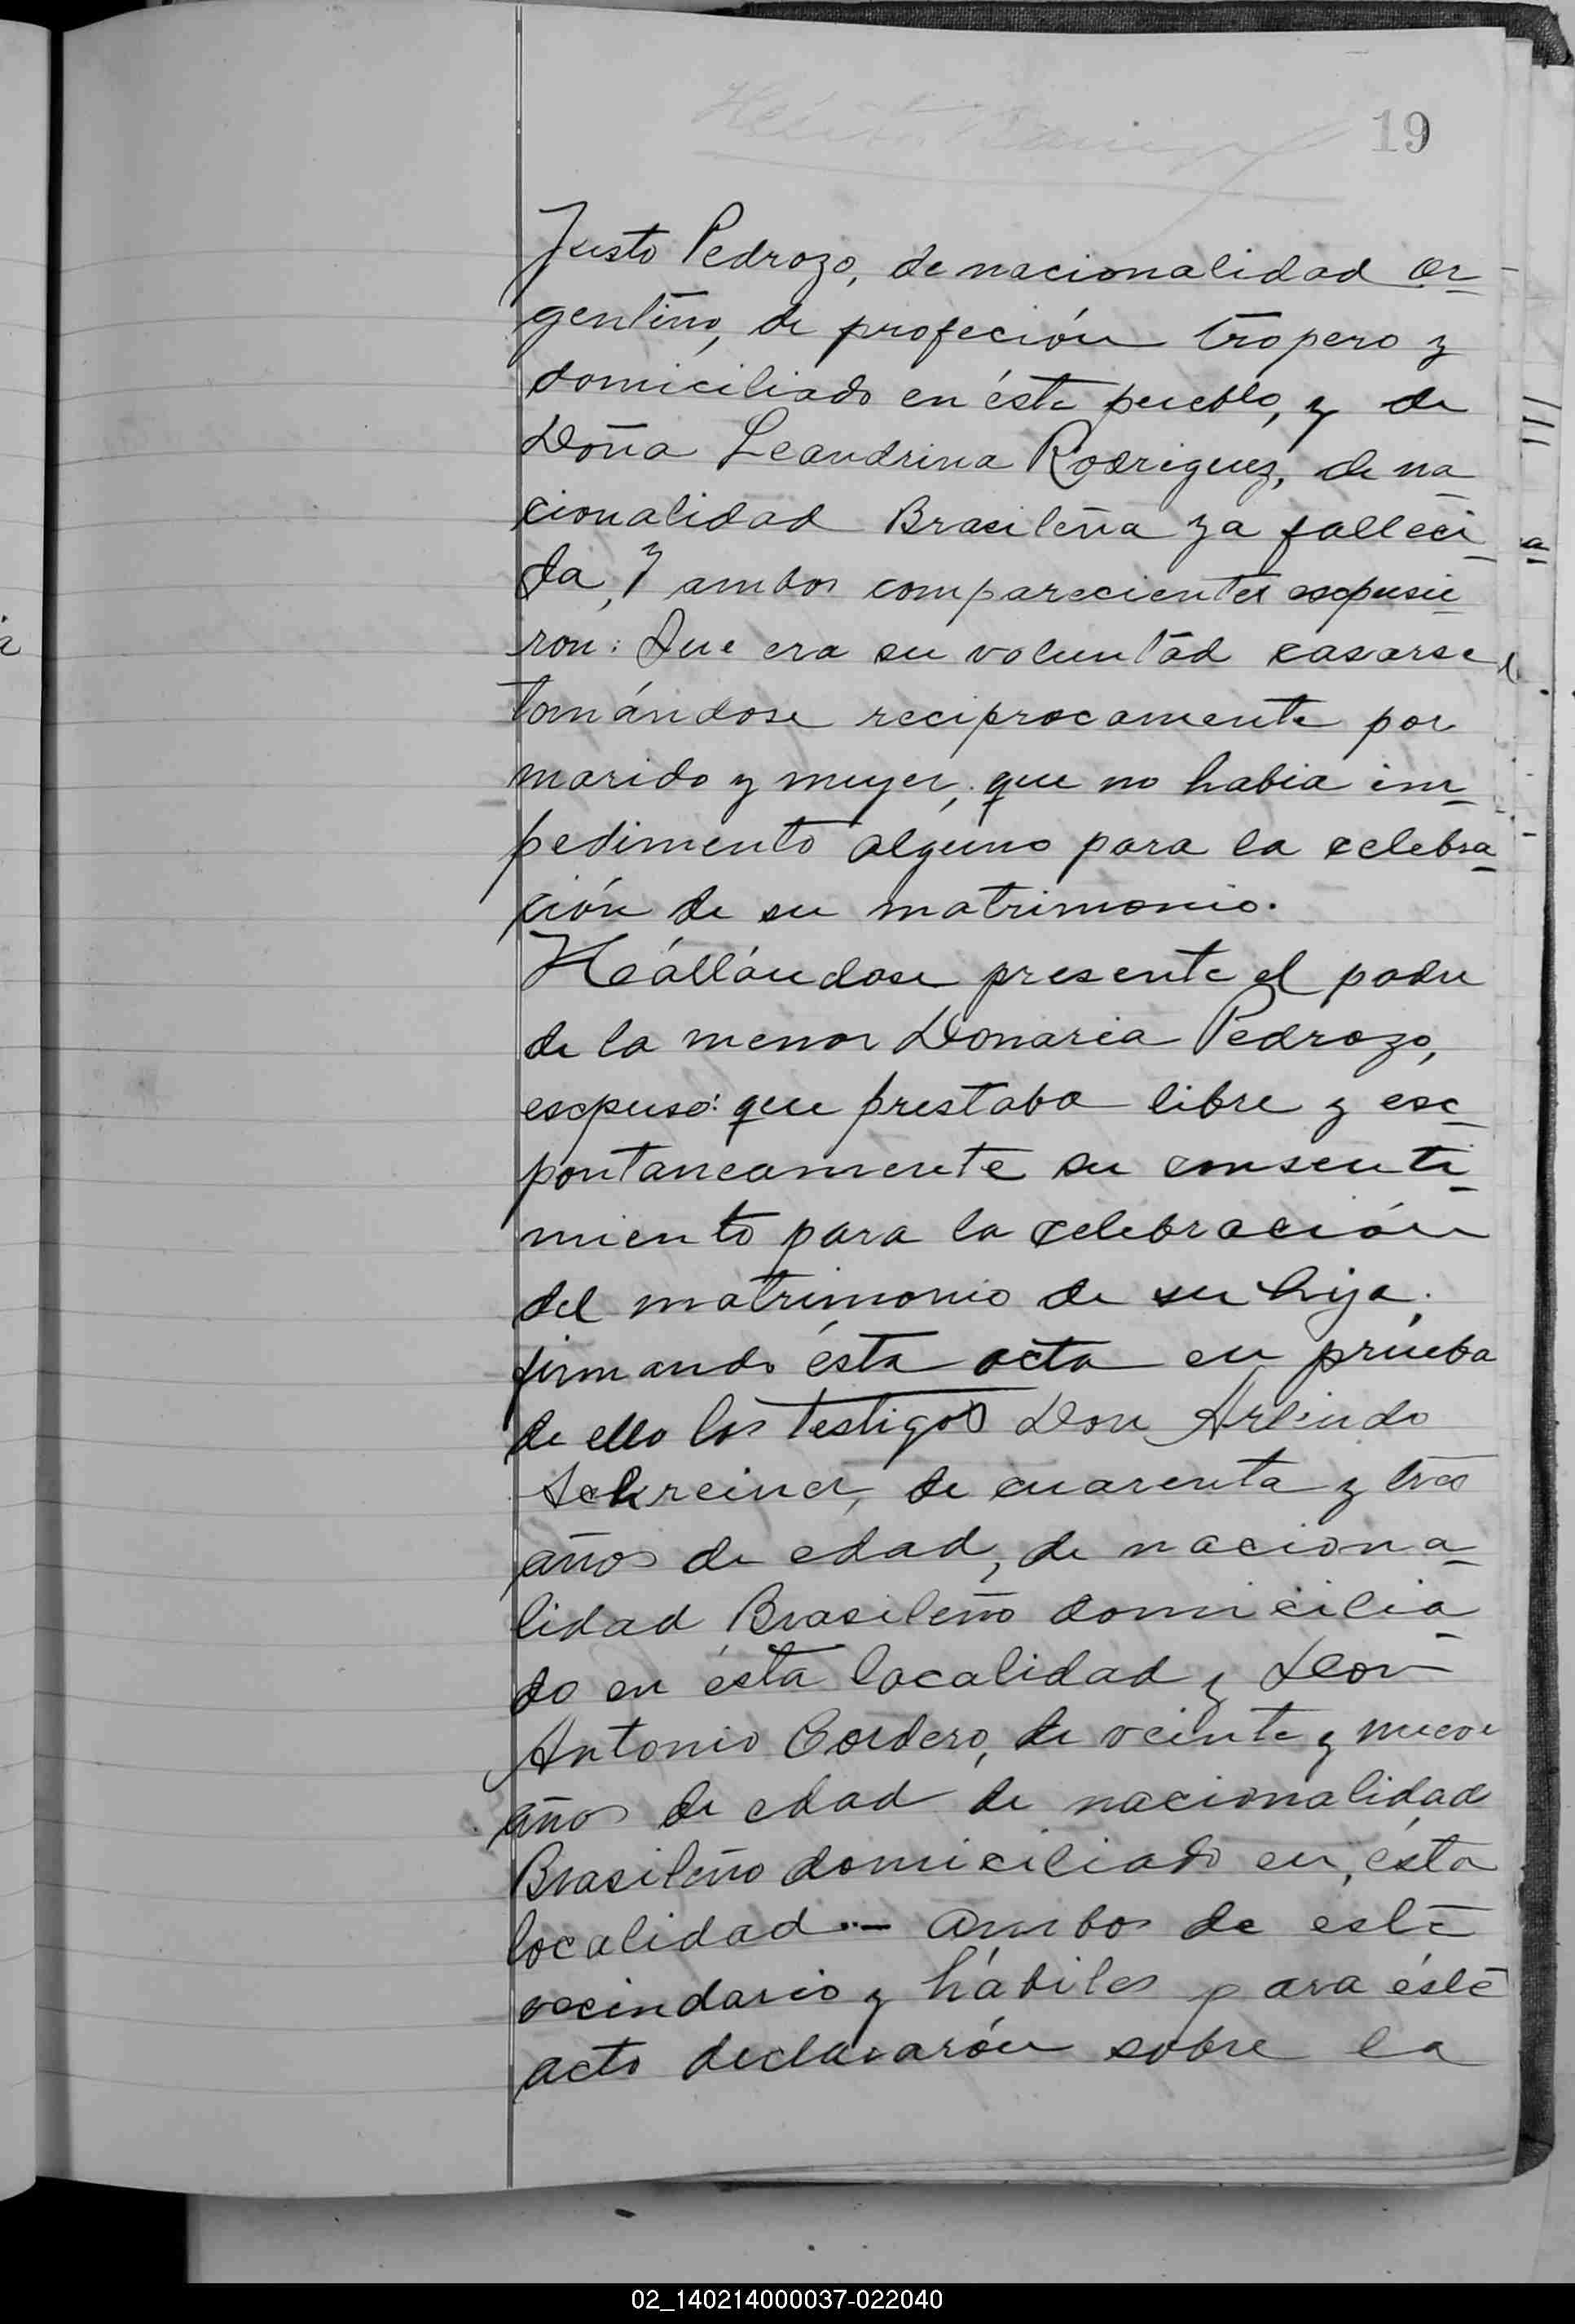 19
Justo Pedrozo, de nacionalidad ar-
gentino, de profeción tropero y
domiciliado en éste pueblo, y de
Doña Leandrina Rodriguez, de na
cionalidad Brasileña ya falleci
da, y ambos comparecientes expusie
ron: Que era su voluntad casarse
tomándose reciprocamente por
marido y mujer, que no habia im
pedimento alguno para la celebra
ción de su matrimonio.
Hállándose presente el padre
de la menor Donaria Pedrozo,
expuso: que prestaba libre y ex
pontaneamente su consenti
miento para la celebración
del matrimonio de su hija.
firmando ésta acta en prueba
de ello los testigos Don Arlindo
Schreiner, de cuarenta y tres
años de edad, de naciona
lidad Brasileño domicilia
do en ésta localidad y Don
Antonio Cordero, de veinte y nueve
años de edad de nacionalidad
Brasileño domiciliado en ésta
localidad.- ambos de este
vecindario y hábiles para éste
acto declararón sobre la
02_140214000037-022040